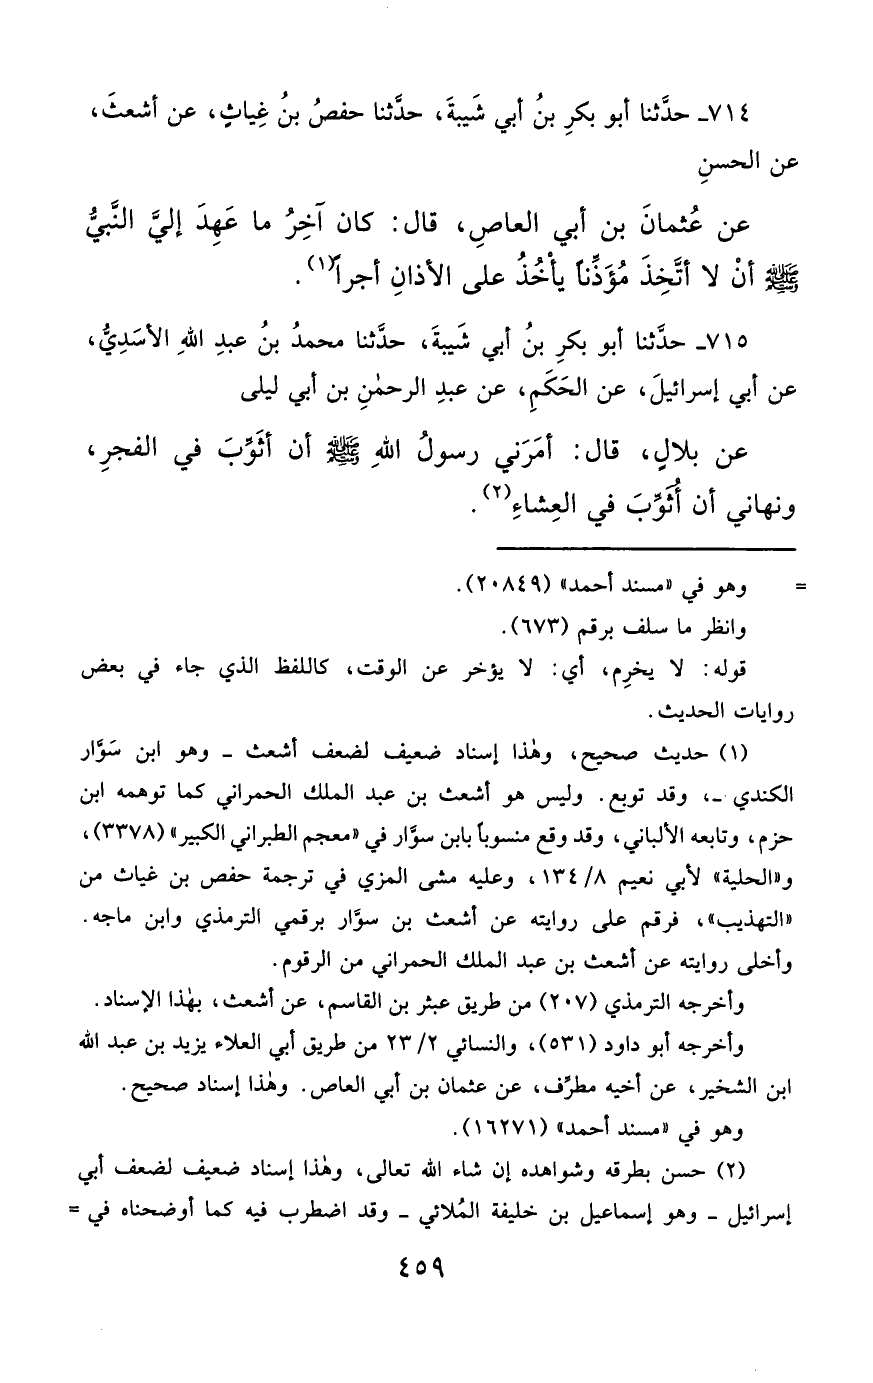 ٧١٤ـ حدَّثنا أبو بكرِ بنُ أبي شَيبةَ، حدَّثنا حفصُ بنُ غِياثٍ، عن أشعثَ،
عن الحسنِ
عن عُثمانَ بن أبي العاصِ، قال: كان آخِرُ ما عَهِدَ إليَّ النَّبيُّ
ﷺ أنْ لا أتَّخِذَ مُؤَذِّناً يأْخُذُ على الأذانِ أجراً(١).
٧١٥ـ حدَّثنا أبو بكرِ بنُ أبي شَيبةَ، حدَّثنا محمدُ بنُ عبدِ اللهِ الأسَدِيُّ،
عن أبي إسرائيلَ، عن الحَكَمِ، عن عبدِ الرحمٰنِ بن أبي ليلى
عن بلالٍ، قال: أمَرَني رسولُ اللهِ ﷺ أن أثَوِّبَ في الفجرِ،
ونهاني أن أُثَوِّبَ في العِشاءِ(٢).
= وهو في «مسند أحمد» (٢٠٨٤٩).
وانظر ما سلف برقم (٦٧٣).
قوله: لا يخرِم، أي: لا يؤخر عن الوقت، كاللفظ الذي جاء في بعض
روايات الحديث.
(١) حديث صحيح، وهٰذا إسناد ضعيف لضعف أشعث ـ وهو ابن سَوَّار
الكندي ـ، وقد توبع. وليس هو أشعث بن عبد الملك الحمراني كما توهمه ابن
حزم، وتابعه الألباني، وقد وقع منسوباً بابن سوَّار في «معجم الطبراني الكبير» (٣٣٧٨)،
و«الحلية» لأبي نعيم ١٣٤/٨، وعليه مشى المزي في ترجمة حفص بن غياث من
«التهذيب»، فرقم على روايته عن أشعث بن سوَّار برقمي الترمذي وابن ماجه.
وأخلى روايته عن أشعث بن عبد الملك الحمراني من الرقوم.
وأخرجه الترمذي (٢٠٧) من طريق عبثر بن القاسم، عن أشعث، بهٰذا الإسناد.
وأخرجه أبو داود (٥٣١)، والنسائي ٢٣/٢ من طريق أبي العلاء يزيد بن عبد الله
ابن الشخير، عن أخيه مطرِّف، عن عثمان بن أبي العاص. وهٰذا إسناد صحيح.
وهو في «مسند أحمد» (١٦٢٧١).
(٢) حسن بطرقه وشواهده إن شاء الله تعالى، وهٰذا إسناد ضعيف لضعف أبي
إسرائيل ـ وهو إسماعيل بن خليفة المُلائي ـ وقد اضطرب فيه كما أوضحناه في =
٤٥٩